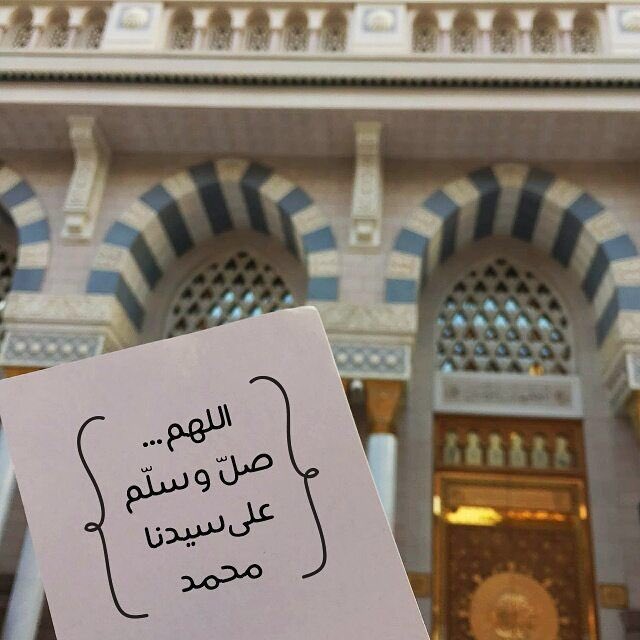 اللهم...
صلّ وسلّم
على سيدنا
محمد